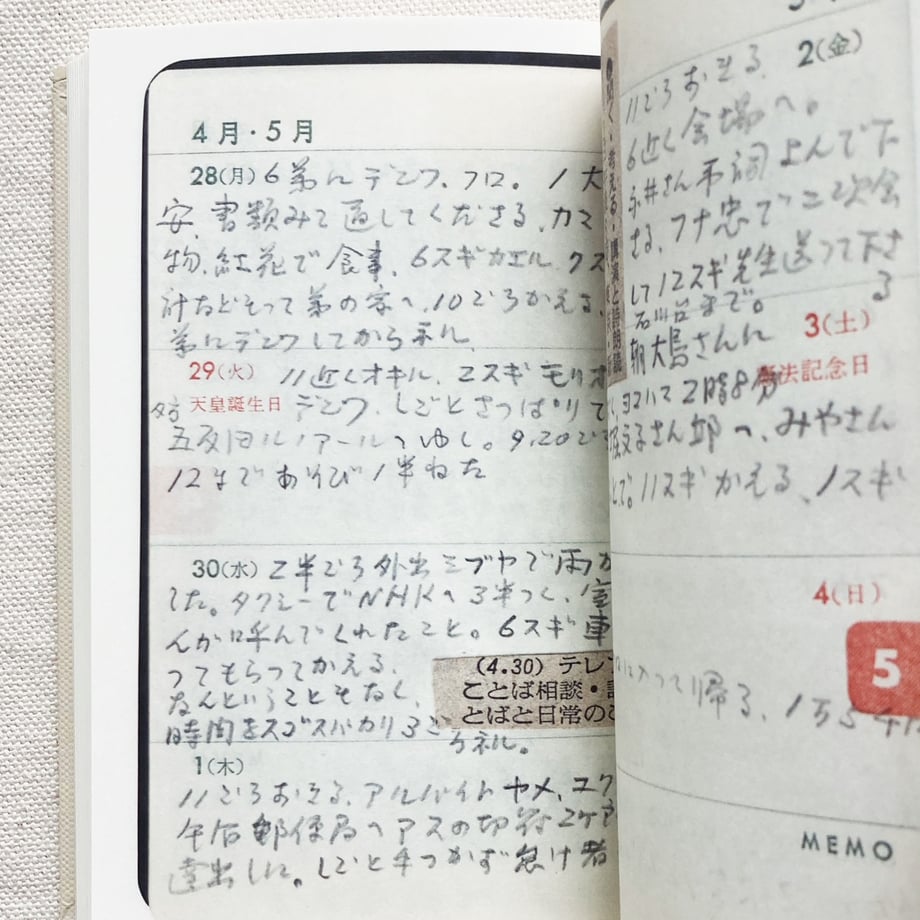 4月・5月
28(月) 6 弟にデンワ、フロ。1大
安、書類みて直してくださる、カマ
物、紅花で食事、6スギカエル クス
計などもって弟の家へ、10ごろかえる、
弟にデンワしてから
29(火) 11近くオキル、2スギ モリオ
天皇誕生日 デンワ、しごとさっぱりで
五反田ルノアールへゆく。9.20ごろ
12まであそび1半ねた
30(水) 2半ごろ外出 シブヤで雨が
した。タクシーでNHKへ3半つく、室
んが呼んでくれたこと。6スギ車
つてもらってかえる、
なんということもなく、
時間をスゴスバカリ3ご
ろネル。
(4.30) テレ
ことば相談・
とばと日常の
1(木)
11ごろおきる、アルバイトヤメ、ユク
午后郵便局へアスの切符2ケ
達出しに。しごと手つかず怠け者
●聞く・考える・講演と詩朗読
2(金)
11ごろおきる、
6近く会場へ。
永井さん弔詞よんで下
さる、フナ忠で二次会
して12スギ先生送って下さ
る
石川台まで。
3(土)
朝大島さんに
憲法記念日
ヨコハマ2時8分
子さん邸へ、みやさん
とで。11スギかえる、1スギ
4(日)
って帰る、1万5千
5
MEMO